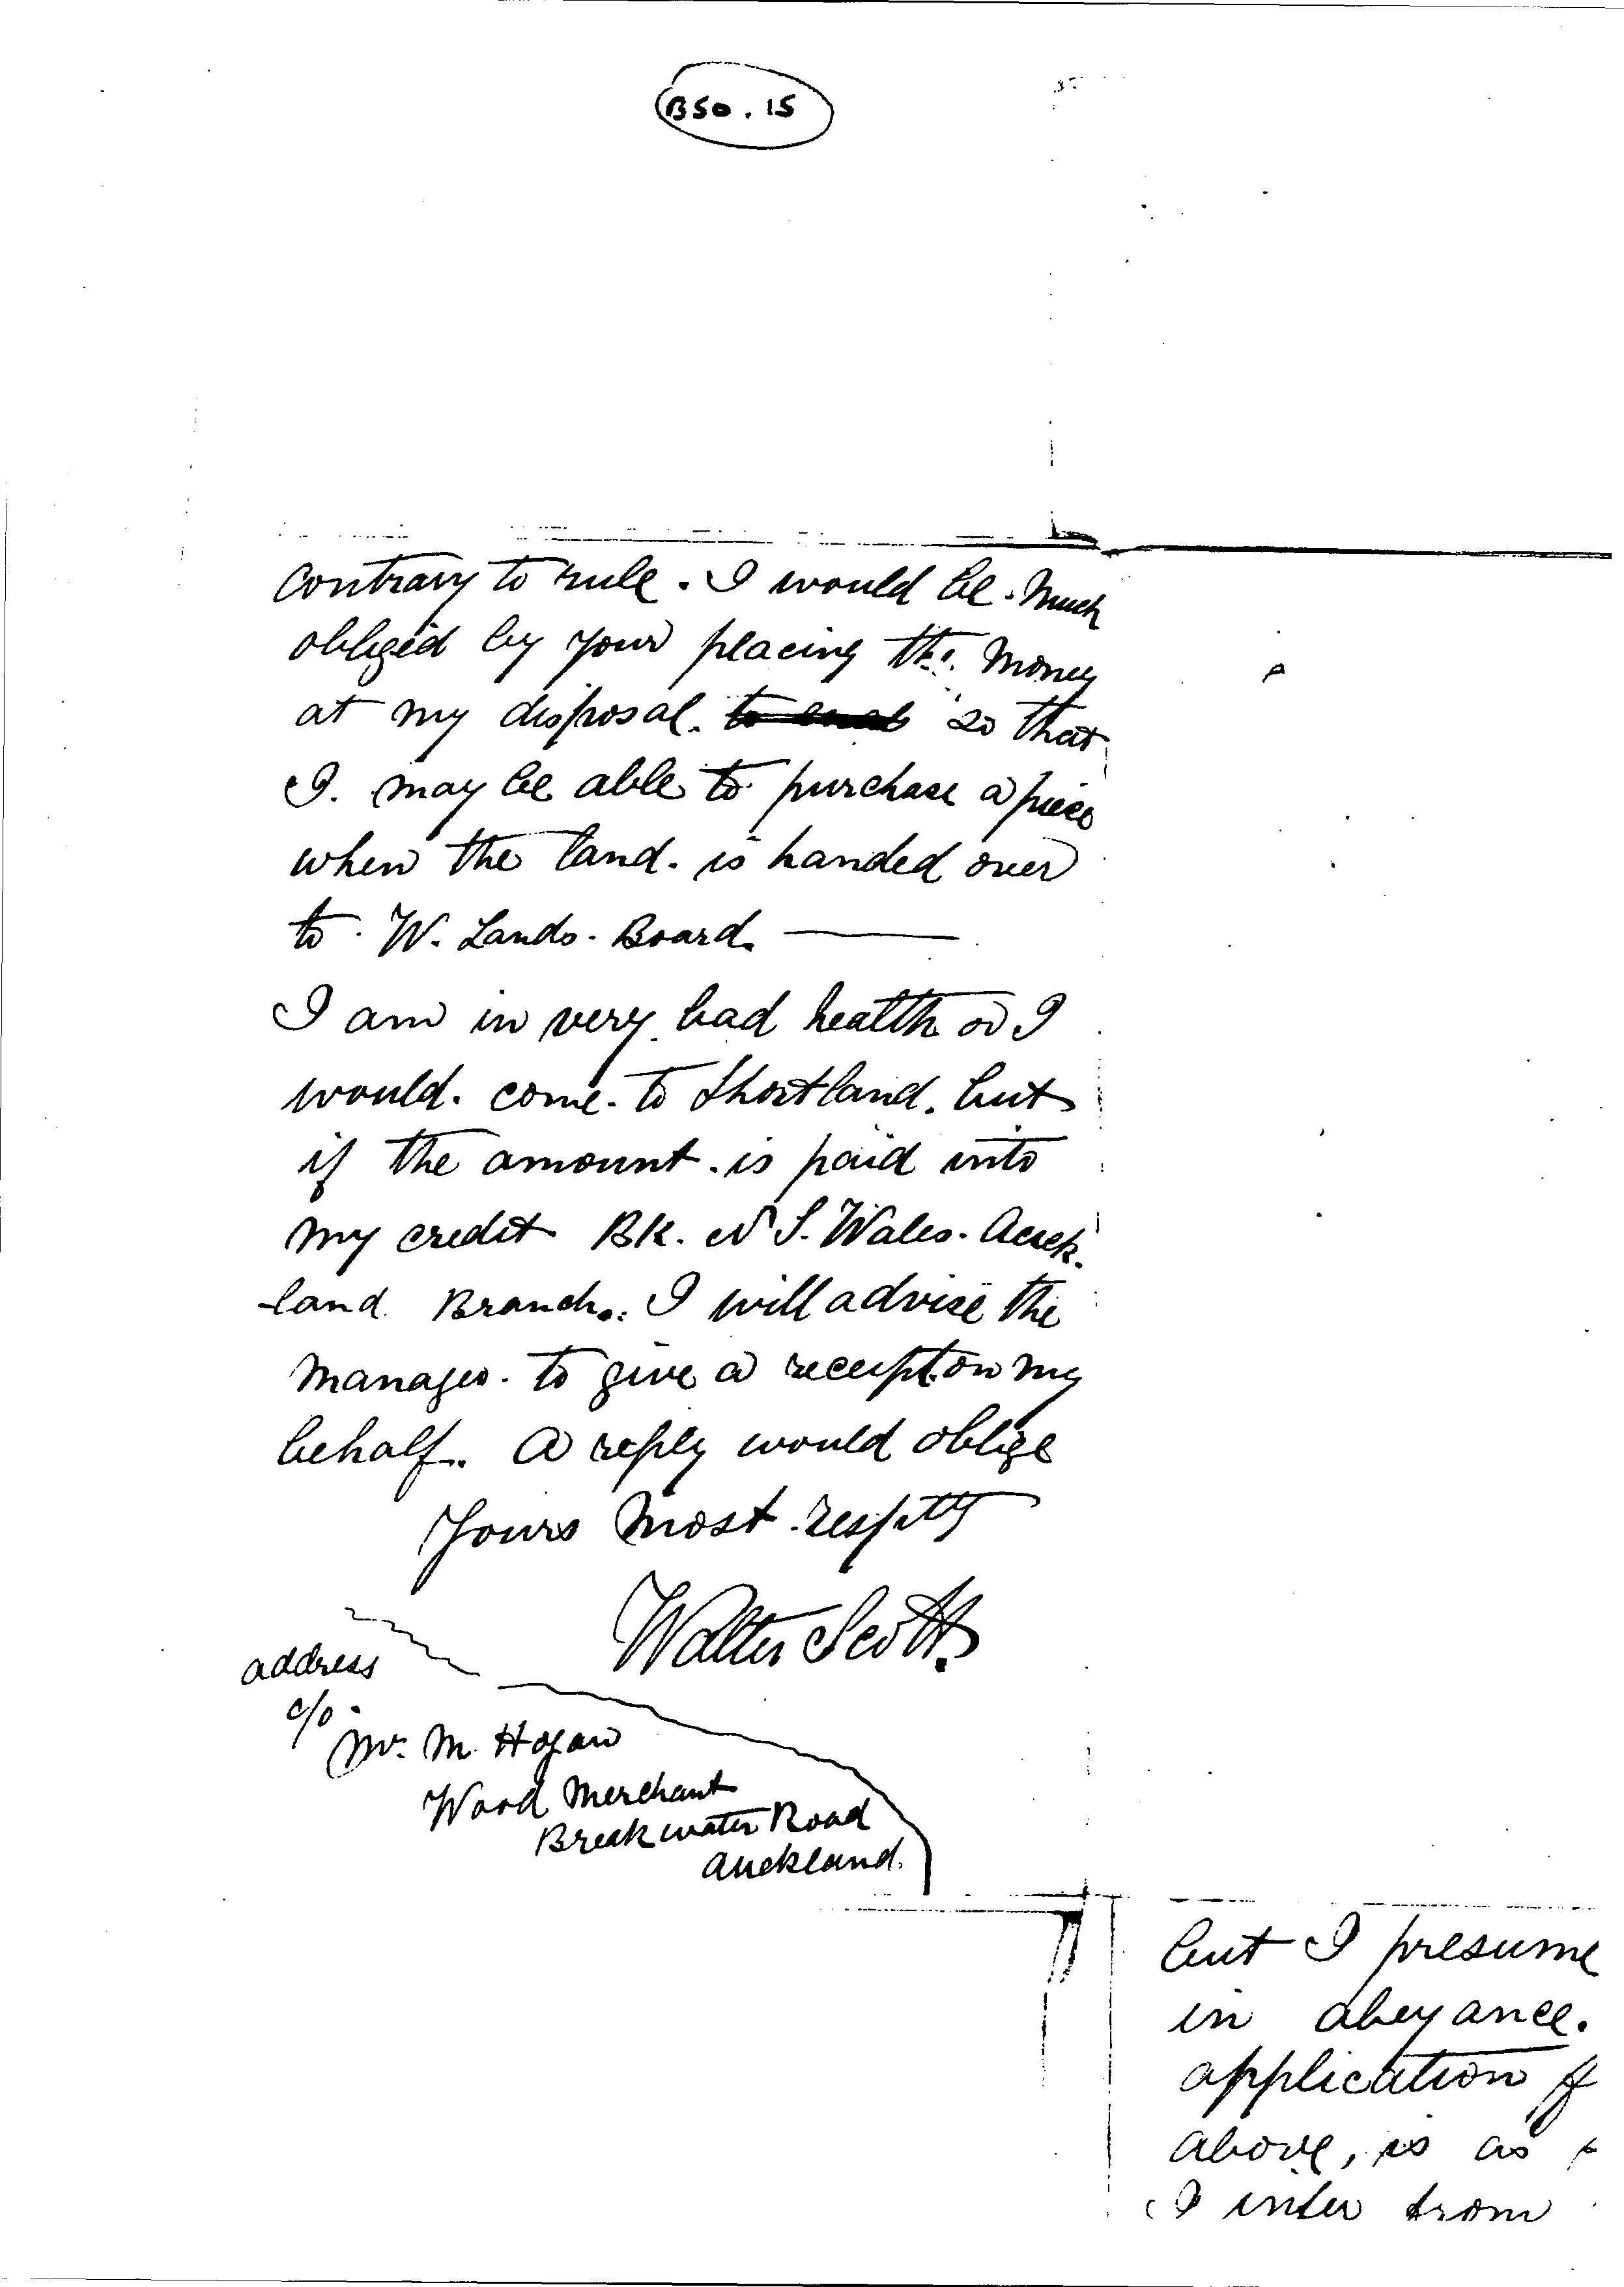 B50.15
Contrary to rule. I would be. Much
obliged by your placing the. Money
at my disposal. to enab so that
I. may be able to purchase a piece
when the land. is handed over
to. W. Lands. Board.
I am in very bad health or I
would. come. to Shortland. but
if the amount. is paid into
my credit Bk. N S. Wales. Auck.
-land Branch. I will advise the
Manager. to give a receipt on my
behalf. A reply would oblige
Yours Most. resptly
Walter Scott.
address
c/o
Mr. M. Hogan
Wood Merchant
Breakwater Road
Auckland.
but I presume
in abeyance.
application
above, is as
I infer from